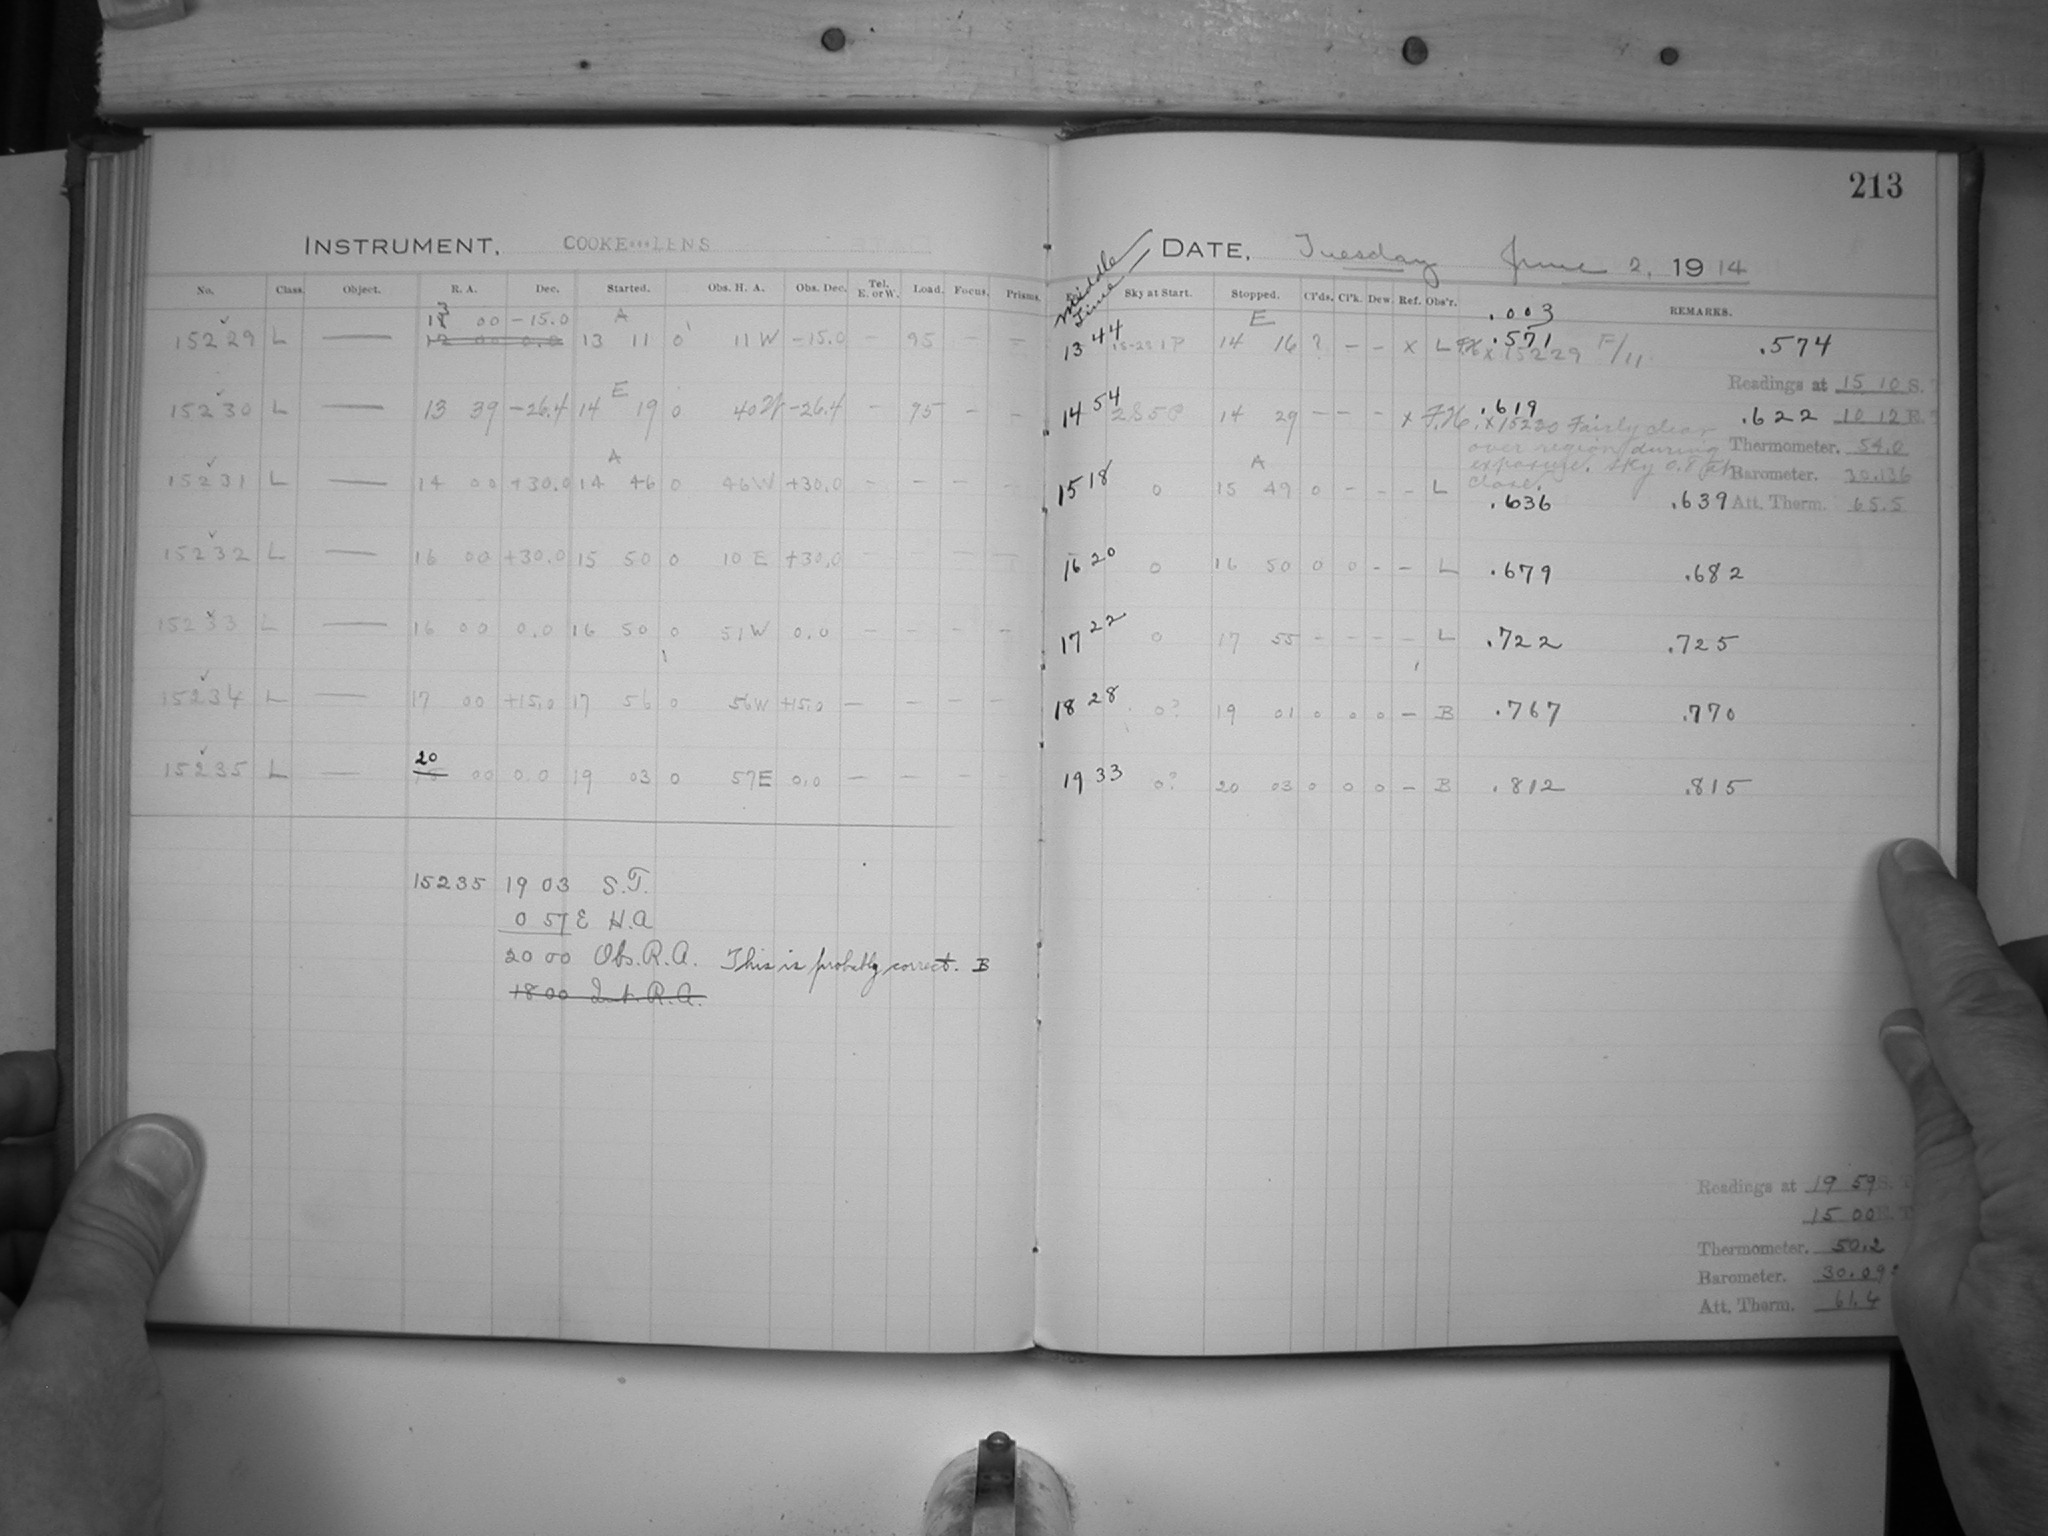 213
INSTRUMENT, COOKE LENS
DATE, Tuesday June 2, 1914
No. Class. Object. R. A. Dec. Started. Obs. H. A. Obs. Dec. Tel. E. or W. Load. Focus. Prisms.
Middle Time Sky at Start. Stopped. Cl'ds. Cl'k. Dew. Ref. Obs'r. .003 REMARKS.
13 00 -15.0 A E
15229 L — 12 00 0.0 13 11 0 11 W -15.0 - 95 - - 13 44 1P 14 16 ? - - x L .571 x 15229 F/11 .574
Readings at 15 10 S.
E
15230 L — 13 39 -26.4 14 19 0 40 W -26.4 - 95 - - 14 54 2S5P 14 29 - - - x F.H. .619 x 15230 Fairly clear .622 10 12 E.
over region during Thermometer. 54.0
exposure. Sky 0.8 at Barometer. 30.136
close.
A A
15231 L — 14 00 +30.0 14 46 0 46 W +30.0 - - - - 15 18 0 15 49 0 - - - L .636 .639 Att. Therm. 65.5
15232 L — 16 00 +30.0 15 50 0 10 E +30.0 16 20 0 16 50 0 0 - - L .679 .682
15233 L — 16 00 0.0 16 50 0 51 W 0.0 - - - - 17 22 0 17 55 - - - - L .722 .725
15234 L — 17 00 +15.0 17 56 0 56 W +15.0 - - - - 18 28 0? 19 01 0 0 0 - B .767 .770
20
15235 L — 18 00 0.0 19 03 0 57 E 0.0 - - - - 19 33 0? 20 03 0 0 0 - B .812 .815
15235 19 03 S.T.
0 57 E H.A
20 00 Obs. R.A. This is probably correct. B
18 00 Int. R.A.
Readings at 19 59 S.
15 00
Thermometer. 50.2
Barometer. 30.09
Att. Therm. 61.4